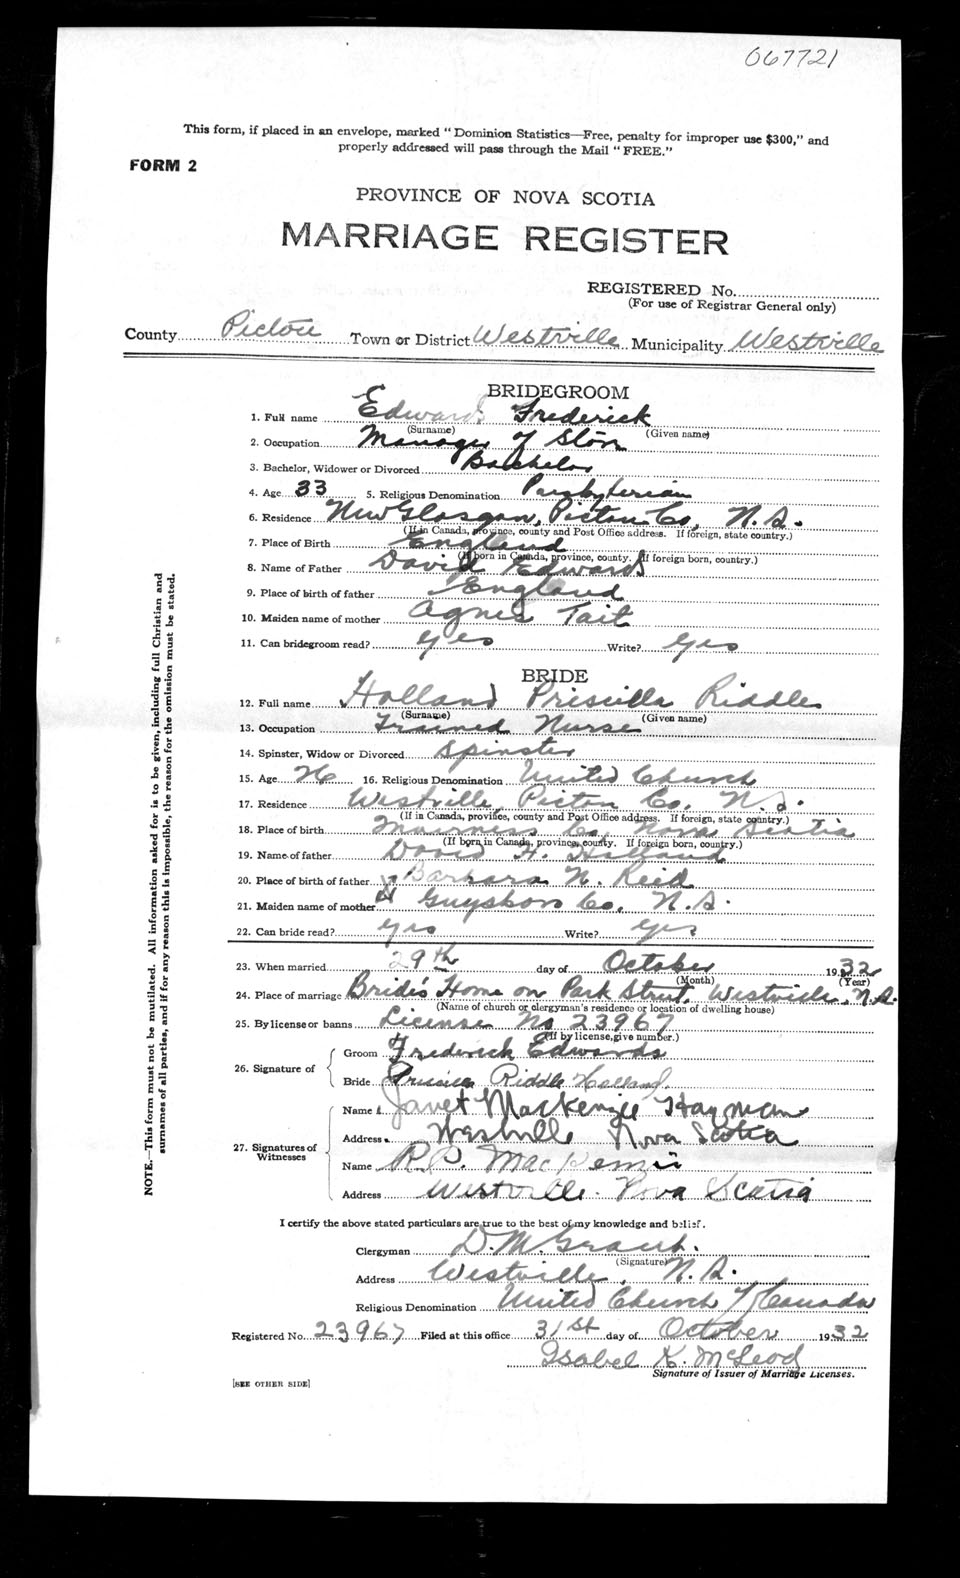 067721
This form, if placed in an envelope, marked "Dominion Statistics—Free, penalty for improper use $300," and
properly addressed will pass through the Mail "FREE."
FORM 2
PROVINCE OF NOVA SCOTIA
MARRIAGE REGISTER
REGISTERED No.
(For use of Registrar General only)
County Pictou Town or District Westville Municipality Westville
BRIDEGROOM
1. Full name Edwards Frederick
(Surname) (Given name)
2. Occupation Manager of Store
3. Bachelor, Widower or Divorced Bachelor
4. Age 33 5. Religious Denomination Presbyterian
6. Residence New Glasgow, Pictou Co, N.S.
(If in Canada, province, county and Post Office address. If foreign, state country.)
7. Place of Birth England
(If born in Canada, province, county. If foreign born, country.)
8. Name of Father David Edwards
9. Place of birth of father England
10. Maiden name of mother Agnes Tait
11. Can bridegroom read? yes Write? yes
BRIDE
12. Full name Holland Priscilla Riddle
(Surname) (Given name)
13. Occupation Trained Nurse
14. Spinster, Widow or Divorced Spinster
15. Age 26 16. Religious Denomination United Church
17. Residence Westville, Pictou Co. N.S.
(If in Canada, province, county and Post Office address. If foreign, state country.)
18. Place of birth Co, Nova Scotia
(If born in Canada, province, county. If foreign born, country.)
19. Name of father David H. Holland
20. Place of birth of father Barbara N. Reid
21. Maiden name of mother Guysboro Co, N.S.
22. Can bride read? yes Write? yes
23. When married 29th day of October 1932
(Month) (Year)
24. Place of marriage Bride's Home on Park Street, Westville, N.S.
(Name of church or clergyman's residence or location of dwelling house)
25. By license or banns License No 23967
(If by license, give number.)
26. Signature of
Groom Frederick Edwards
Bride Priscilla Riddle Holland
27. Signatures of Witnesses
Name Janet MacKenzie Hayman
Address Westville Nova Scotia
Name R.P. MacKenzie
Address Westville Nova Scotia
I certify the above stated particulars are true to the best of my knowledge and belief.
Clergyman D. M. Grant.
(Signature)
Address Westville, N.S.
Religious Denomination United Church of Canada
Registered No. 23967 Filed at this office 31st day of October 1932
Isabel K. McLeod
Signature of Issuer of Marriage Licenses.
[SEE OTHER SIDE]
NOTE.—This form must not be mutilated. All information asked for is to be given, including full Christian and
surnames of all parties, and if for any reason this is impossible, the reason for the omission must be stated.